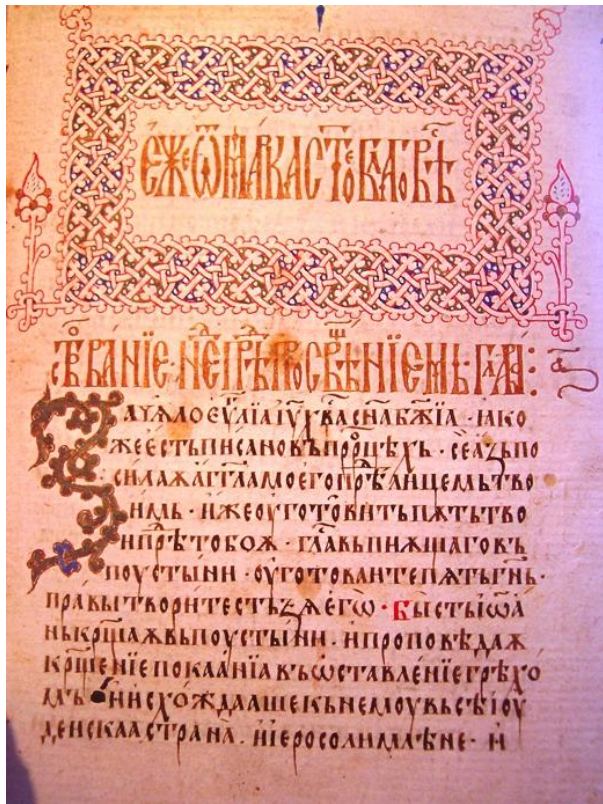 еже ѿ ма́рка ст҃ое бл҃гово́рѣ
ст҃ва́нїе
За́чѧло еѵⷢ҇лїа і҆у҃ х҃ва сн҃а бж҃їа · ꙗко
же е́сть писано въ прⷪ҇ро́цѣхъ · се а́зъ по
сила́ѫ а́гг҃ла моего прѣ́д лицемь тво
имь · иже оу́готови́ть пѫ́ть тво
и прѣ́д тобоѫ · гла́съ въпиѫ́щаго въ
поусты́ни · оу́готова́ите пѫ́ть гн҃ь ·
пра́вы твори́те стьзѧ̀ е́гѡ̀ · Бы́сть і҆ѡа́
нь кр҃ща́ѫ въ поусты́ни · и проповѣ́даѫ
кр҃ще́нїе покаа́нїа въ ѡ҆ставле́нїе грѣхо́
мъ · и исхо́ждааше къ немоу въсѣ̀ іоу
де́искаа страна̀ . и іеросоли́млѣне · и